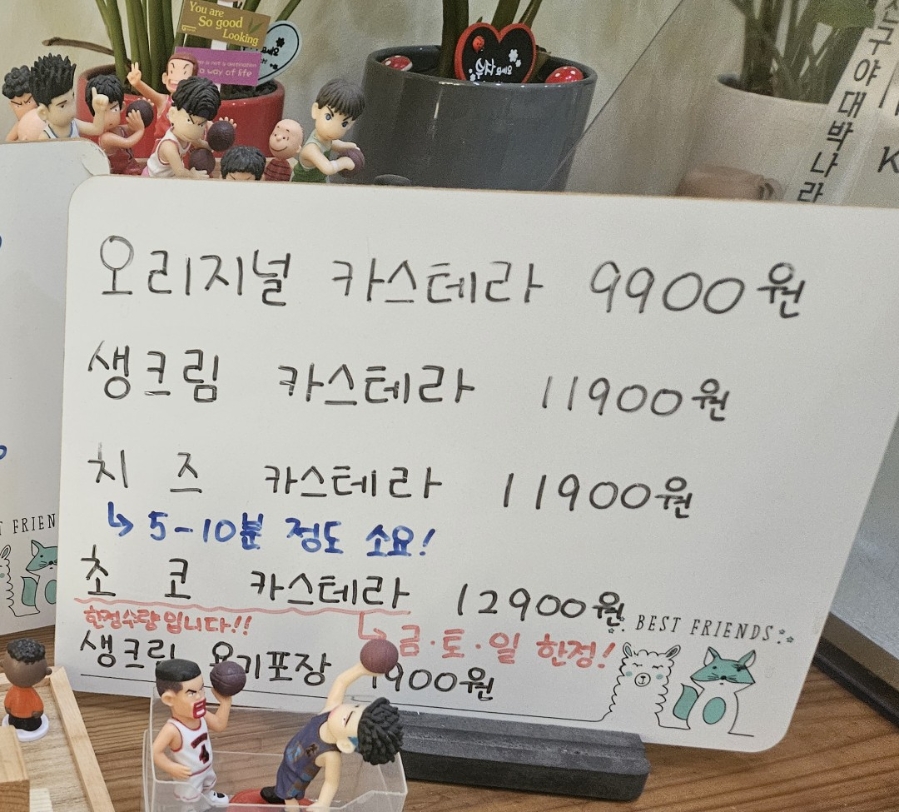 You are
So good
Looking
a way of life
오리지널 카스테라 9900원
생크림 카스테라 11900원
치즈 카스테라 11900원
↳ 5-10분 정도 소요!
초코 카스테라 12900원
한정수량입니다!!
↳ 금·토·일 한정!
생크림 용기포장 1900원
BEST FRIENDS
T FRIEN
구야대박나라
K